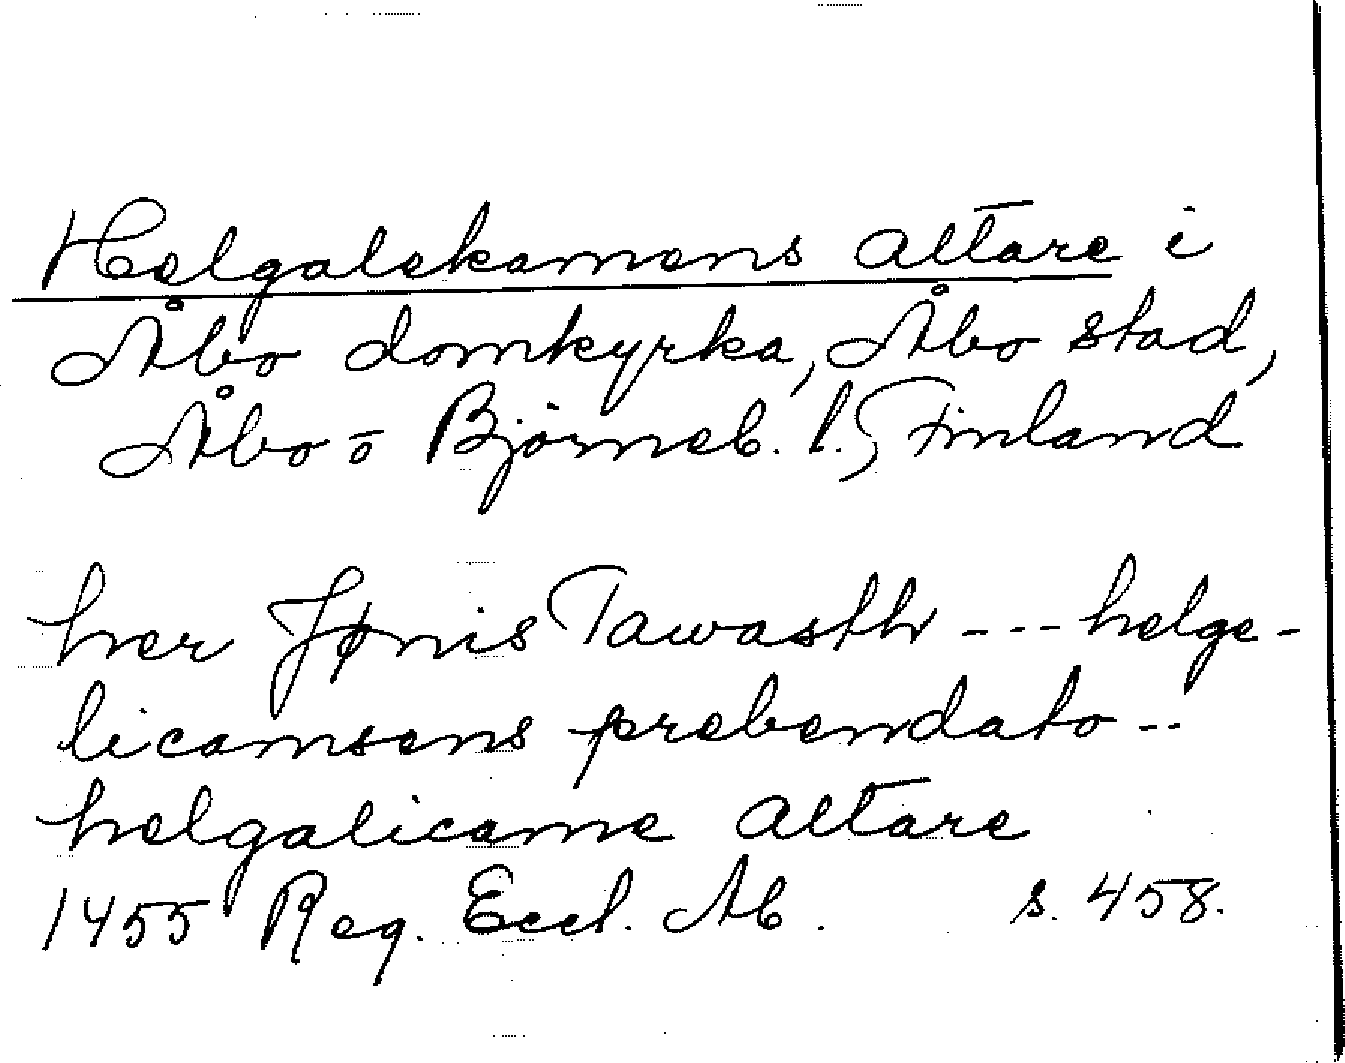 Helgalekamens altare i
Åbo domkyrka, Åbo stad,
Åbo o Björneb. l., Finland
her Jønis Tawasth --- helge-
licamsens prebendato --
helgalicame altare
1455 Reg. Eccl. Ab. s. 458.